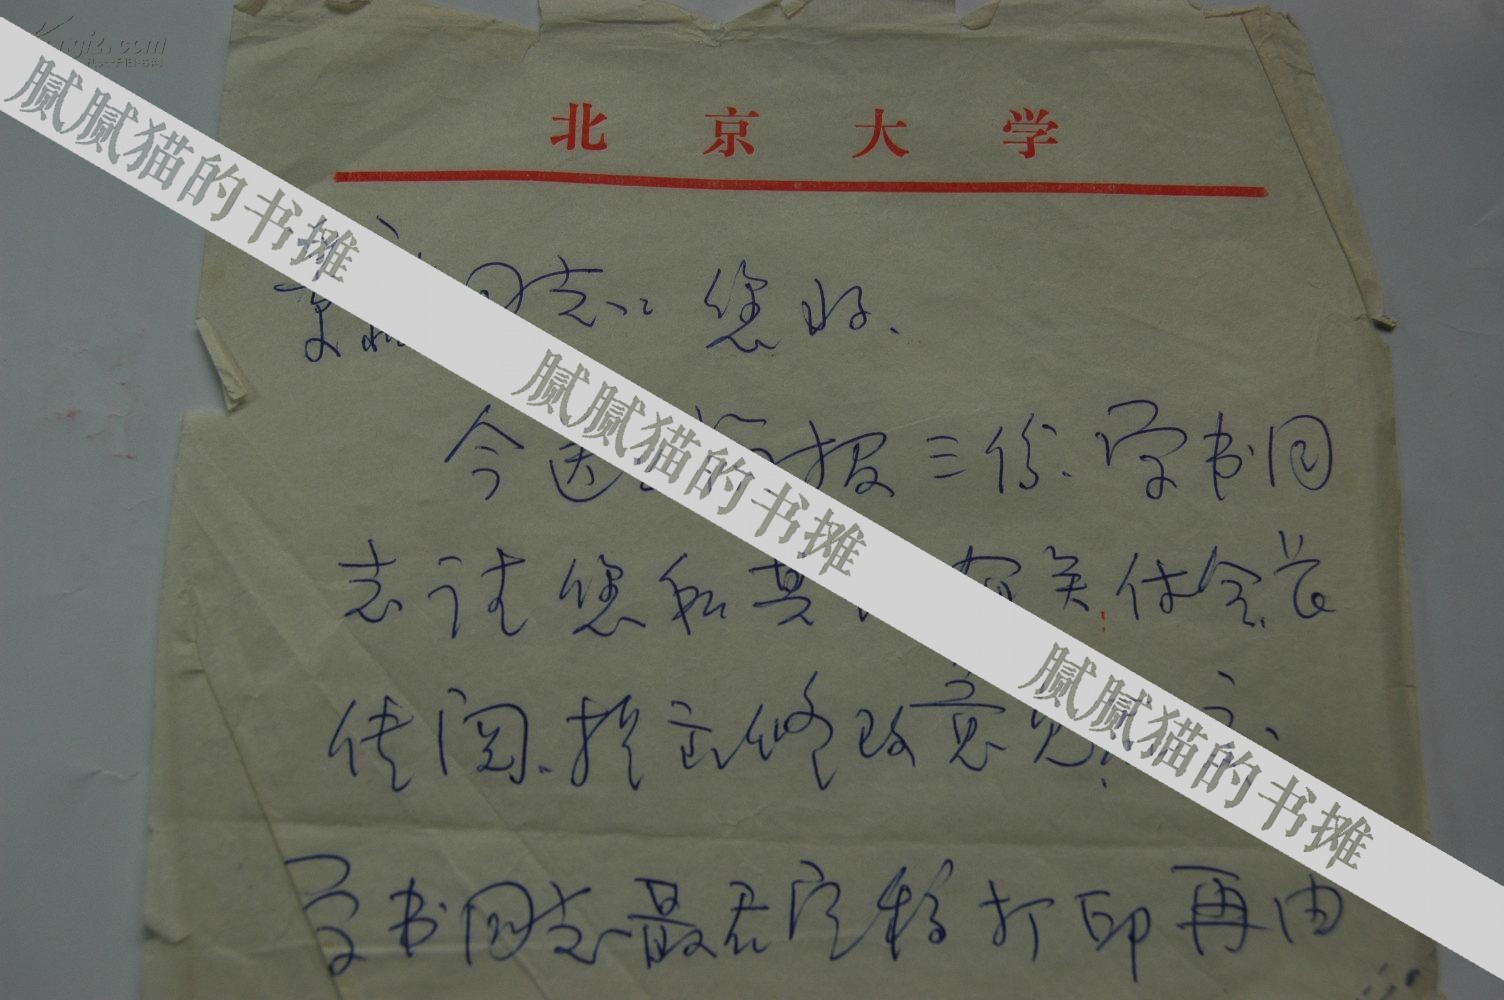 北京大学
同志: 您好.
今送 报三份. 学书同
志请您和其 有关付会长
传阅. 提出修改意见.
学书同志最后定稿打印再由
腻腻猫的书摊
腻腻猫的书摊
腻腻猫的书摊